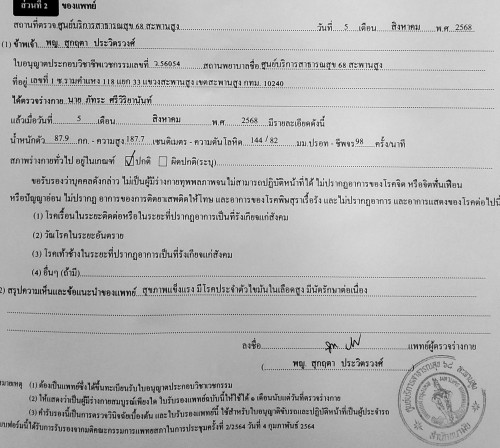 ส่วนที่ 2 ของแพทย์
สถานที่ตรวจ ศูนย์บริการสาธารณสุข 68 สะพานสูง วันที่ 5 เดือน สิงหาคม พ.ศ. 2568
(1) ข้าพเจ้า พญ. สุกฤตา ประวิตรวงศ์
ใบอนุญาตประกอบวิชาชีพเวชกรรมเลขที่ ว.56054 สถานพยาบาลชื่อ ศูนย์บริการสาธารณสุข 68 สะพานสูง
ที่อยู่ เลขที่ 1 ซ.รามคำแหง 118 แยก 33 แขวงสะพานสูง เขตสะพานสูง กทม. 10240
ได้ตรวจร่างกาย นาย ภัทระ ศรีวิริยานันท์
แล้วเมื่อวันที่ 5 เดือน สิงหาคม พ.ศ. 2568 มีรายละเอียดดังนี้
น้ำหนักตัว 87.9 กก. - ความสูง 187.7 เซนติเมตร - ความดันโลหิต 144 / 82 มม.ปรอท - ชีพจร 98 ครั้ง/นาที
สภาพร่างกายทั่วไป อยู่ในเกณฑ์ ☑ ปกติ ☐ ผิดปกติ(ระบุ)
ขอรับรองว่าบุคคลดังกล่าว ไม่เป็นผู้มีร่างกายทุพพลภาพจนไม่สามารถปฏิบัติหน้าที่ได้ ไม่ปรากฏอาการของโรคจิต หรือจิตฟั่นเฟือน
หรือปัญญาอ่อน ไม่ปรากฏ อาการของการติดยาเสพติดให้โทษ และอาการของโรคพิษสุราเรื้อรัง และไม่ปรากฏอาการ และอาการแสดงของโรคต่อไปนี้
(1) โรคเรื้อนในระยะติดต่อหรือในระยะที่ปรากฏอาการเป็นที่รังเกียจแก่สังคม
(2) วัณโรคในระยะอันตราย
(3) โรคเท้าช้างในระยะที่ปรากฏอาการเป็นที่รังเกียจแก่สังคม
(4) อื่นๆ (ถ้ามี)
2) สรุปความเห็นและข้อแนะนำของแพทย์ สุขภาพแข็งแรง มีโรคประจำตัวไขมันในเลือดสูง มีนัดรักษาต่อเนื่อง
ลงชื่อ แพทย์ผู้ตรวจร่างกาย
( พญ. สุกฤตา ประวิตรวงศ์ )
หมายเหตุ (1) ต้องเป็นแพทย์ซึ่งได้ขึ้นทะเบียนรับใบอนุญาตประกอบวิชาชีพเวชกรรม
(2) ให้แสดงว่าเป็นผู้มีร่างกายสมบูรณ์เพียงใด ใบรับรองแพทย์ฉบับนี้ให้ใช้ได้ 1 เดือนนับแต่วันที่ตรวจร่างกาย
(3) คำรับรองนี้เป็นการตรวจวินิจฉัยเบื้องต้น และ ใบรับรองแพทย์นี้ ใช้สำหรับใบอนุญาตขับรถและปฏิบัติหน้าที่เป็นผู้ประจำรถ
แบบฟอร์มนี้ได้รับการรับรองจากมติคณะกรรมการแพทยสภาในการประชุมครั้งที่ 2/2564 วันที่ 4 กุมภาพันธ์ 2564